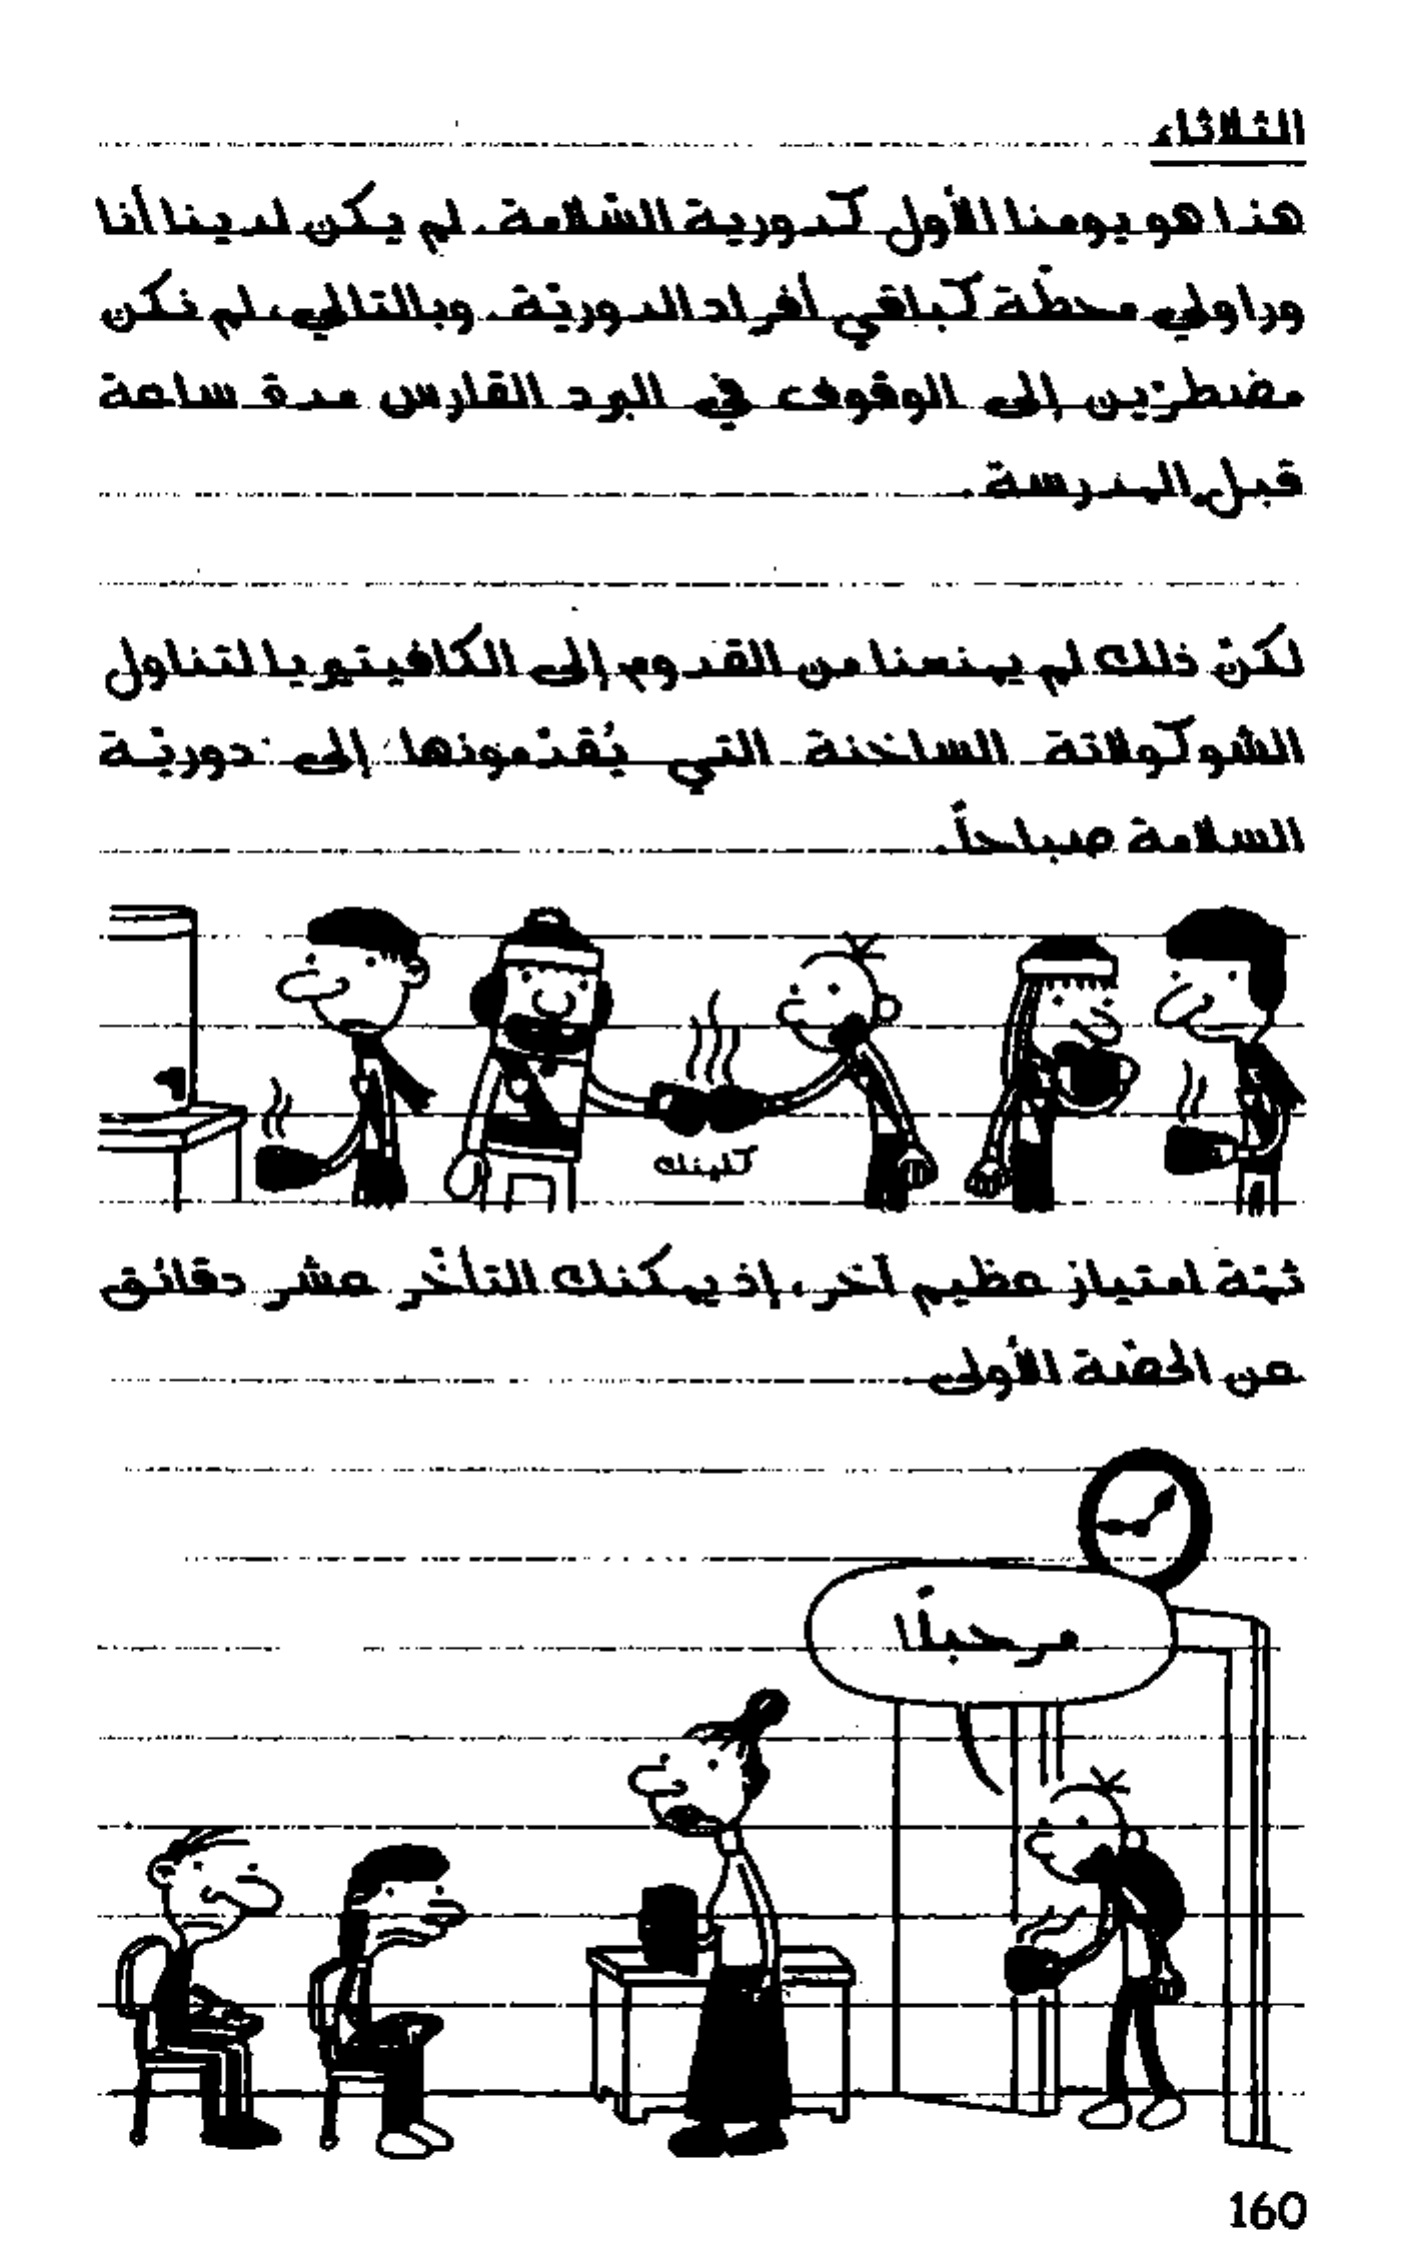 الثلاثاء
هذا هو يومنا الأول كدورية السّلامة. لم يكن لدينا أنا
وراولي محطّة كباقي أفراد الدوريّة. وبالتالي، لم نكن
مضطرّين إلى الوقوف في البرد القارس مدة ساعة
قبل المدرسة.
لكنّ ذلك لم يمنعنا من القدوم إلى الكافيتيريا لتناول
الشوكولاتة الساخنة التي يُقدّمونها إلى دوريّة
السلامة صباحاً.
كلينك
ثمّة امتياز عظيم آخر، إذ يمكنك التأخّر عشر دقائق
عن الحصّة الأولى.
مرحباً!
160